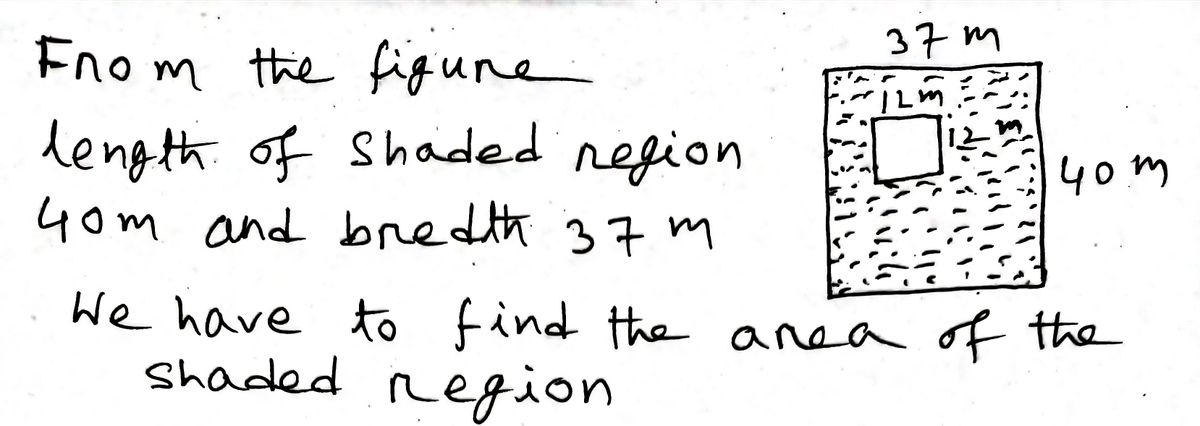 37 m
From the figure
12m
length of shaded region
12 m
40 m
40m and bredth 37 m
We have to find the area of the
shaded region